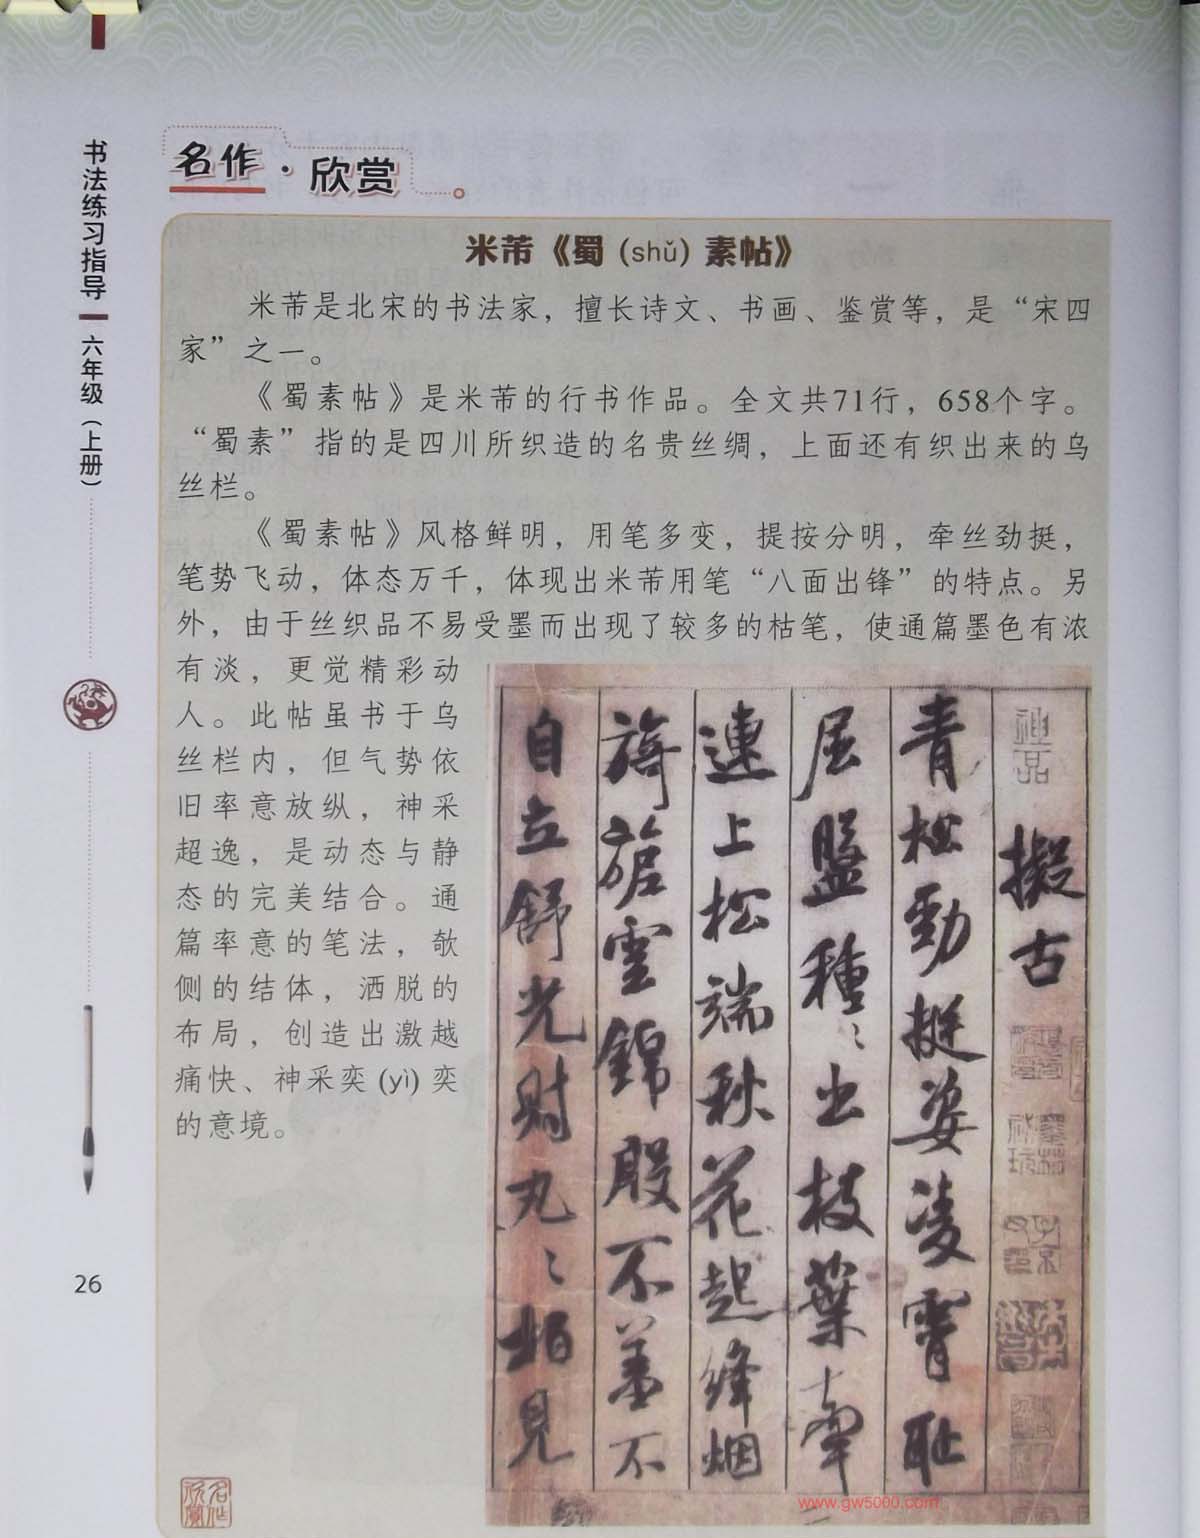 书法练习指导 六年级（上册）
26
名作·欣赏
米芾《蜀（shǔ）素帖》
米芾是北宋的书法家，擅长诗文、书画、鉴赏等，是“宋四
家”之一。
《蜀素帖》是米芾的行书作品。全文共71行，658个字。
“蜀素”指的是四川所织造的名贵丝绸，上面还有织出来的乌
丝栏。
《蜀素帖》风格鲜明，用笔多变，提按分明，牵丝劲挺，
笔势飞动，体态万千，体现出米芾用笔“八面出锋”的特点。另
外，由于丝织品不易受墨而出现了较多的枯笔，使通篇墨色有浓
有淡，更觉精彩动
人。此帖虽书于乌
丝栏内，但气势依
旧率意放纵，神采
超逸，是动态与静
态的完美结合。通
篇率意的笔法，欹
侧的结体，洒脱的
布局，创造出激越
痛快、神采奕(yì)奕
的意境。
擬古
青松勁挺姿凌霄恥
屈盤種〻出枝葉牽
連上松端秋花起絳烟
旖旎雲錦殷不羞不
自立舒光射丸〻柏見
名作欣赏
www.gw5000.com